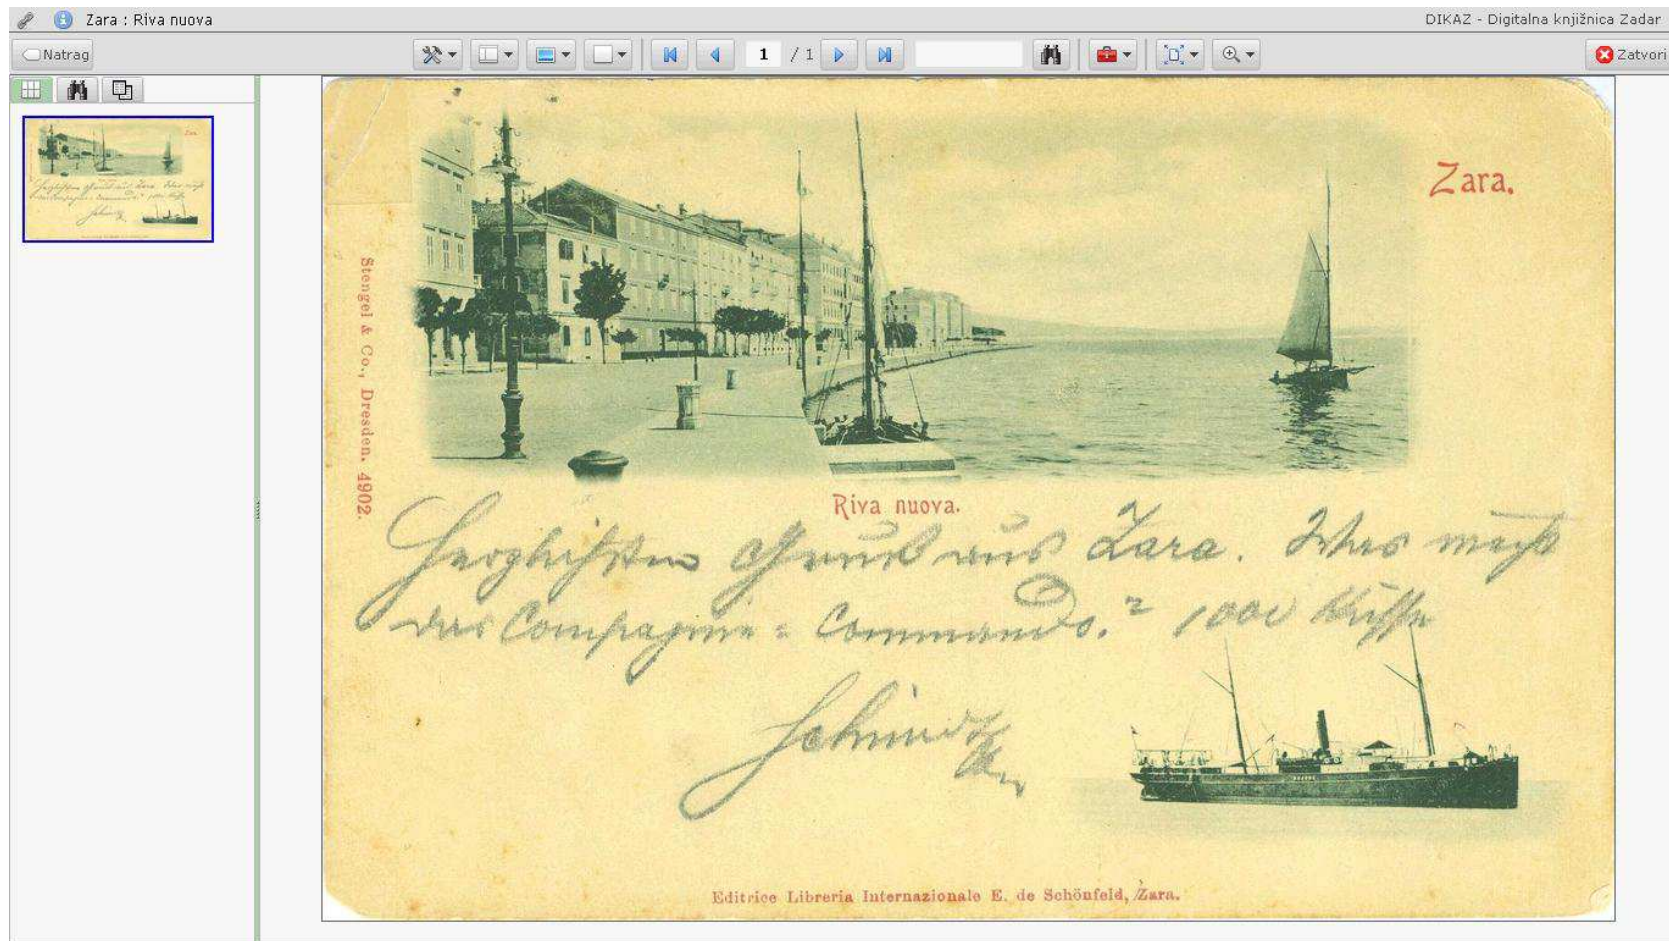 Zara : Riva nuova
DIKAZ - Digitalna knjižnica Zadar
Natrag
1 / 1
Zatvori
Zara.
Stengel & Co., Dresden. 4902.
Riva nuova.
Herzlichsten Gruß aus Zara. Was macht
das Compagnie = Commando.? 1000 Küsse
Schmidt
Editrice Libreria Internazionale E. de Schönfeld, Zara.